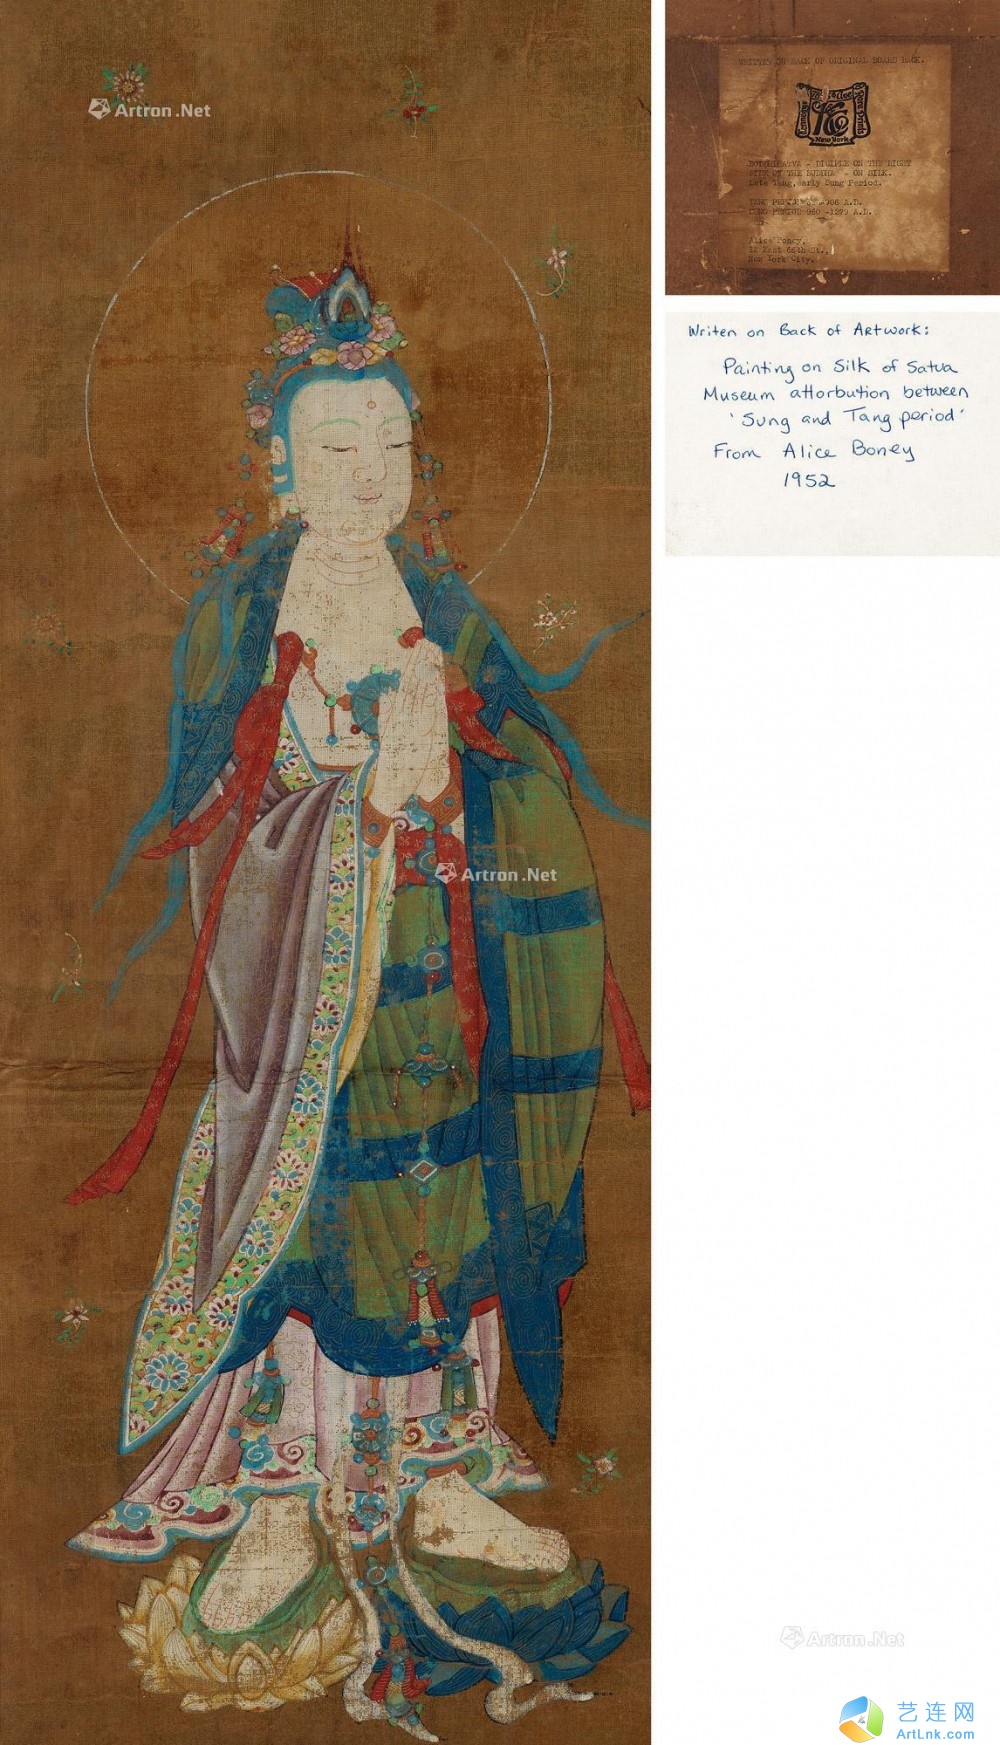 Artron.Net
WRITTEN ON BACK OF ORIGINAL BOARD BACK.
New York
BODHISATVA - DICIPLE ON THE RIGHT
SIDE OF THE BUDDHA - ON SILK.
Late Tang, early Sung Period.
TANG PERIOD 906 A.D.
SUNG PERIOD 960 -1279 A.D.
Alice Boney,
East 66th St.,
New York City.
Writen on Back of Artwork:
Painting on Silk of Satva
Museum attorbution between
'Sung and Tang period'
From Alice Boney
1952
Artron.Net
Artron.Net
艺连网
ArtLnk.com